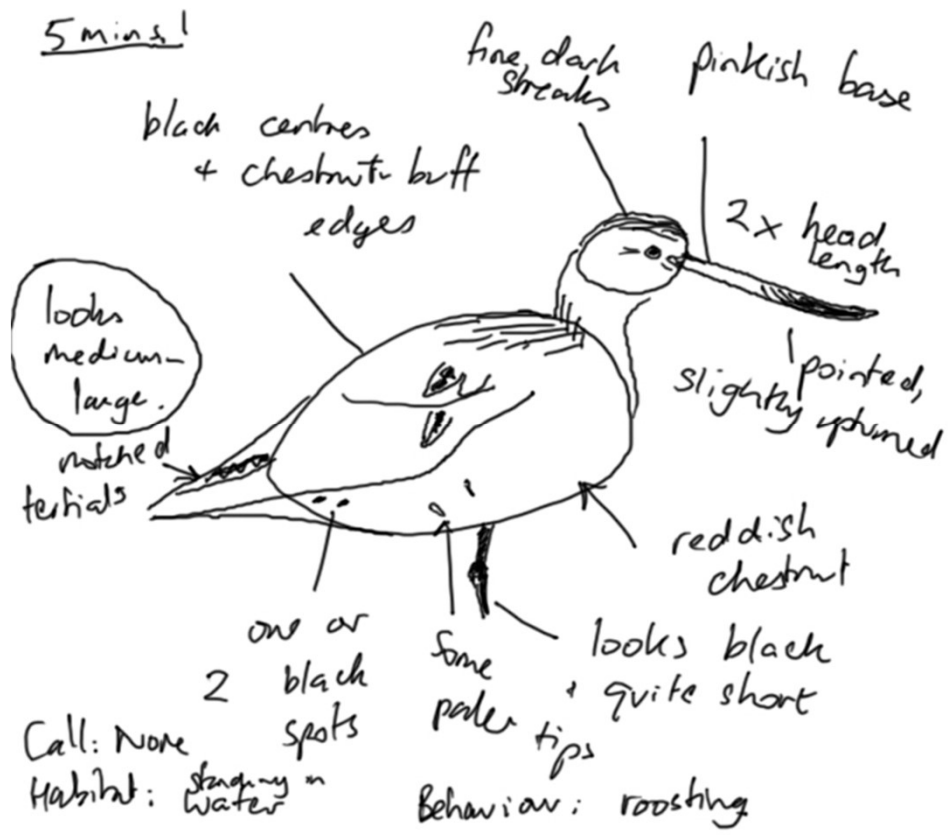 5 mins!
fine, dark
streaks
pinkish base
black centres
+ chestnut-buff
edges
2x head
length
looks
medium-
large.
pointed,
slightly upturned
notched
tertials
reddish
chestnut
one or
2 black
spots
some
paler tips
looks black
+ quite short
Call: None
Habitat: standing in
water
Behaviour: roosting